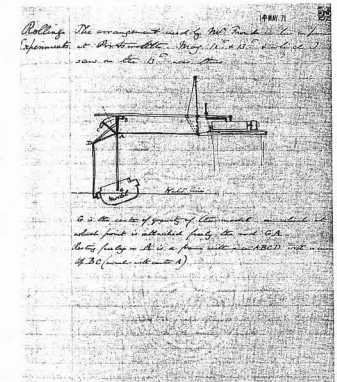 4 MAY 71
Rolling The arrangement used by Mr. Froude in his
Experiments at Portsmouth May 12 & 13 which I
saw on the 13th was thus
Model
Water Line
G is the centre of gravity of the model at
which point is attached freely the rod GA
Resting freely on A is a frame with arm ABCD
of BC (circle with centre A)